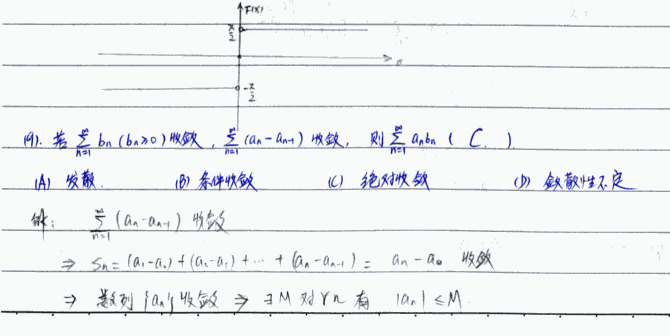 F(x)
π/2
-π/2
(9). 若 ∑_{n=1}^{∞} bn (bn≥0) 收敛, ∑_{n=1}^{∞} (an-an-1) 收敛, 则 ∑_{n=1}^{∞} anbn ( C. )
(A) 发散. (B) 条件收敛 (C) 绝对收敛 (D) 敛散性不定
解: ∑_{n=1}^{∞} (an-an-1) 收敛
⇒ Sn = (a1-a0)+(a2-a1)+ ⋯ + (an-an-1) = an-a0 收敛
⇒ 数列 {an} 收敛 ⇒ ∃M 对∀n 有 |an| ≤ M.